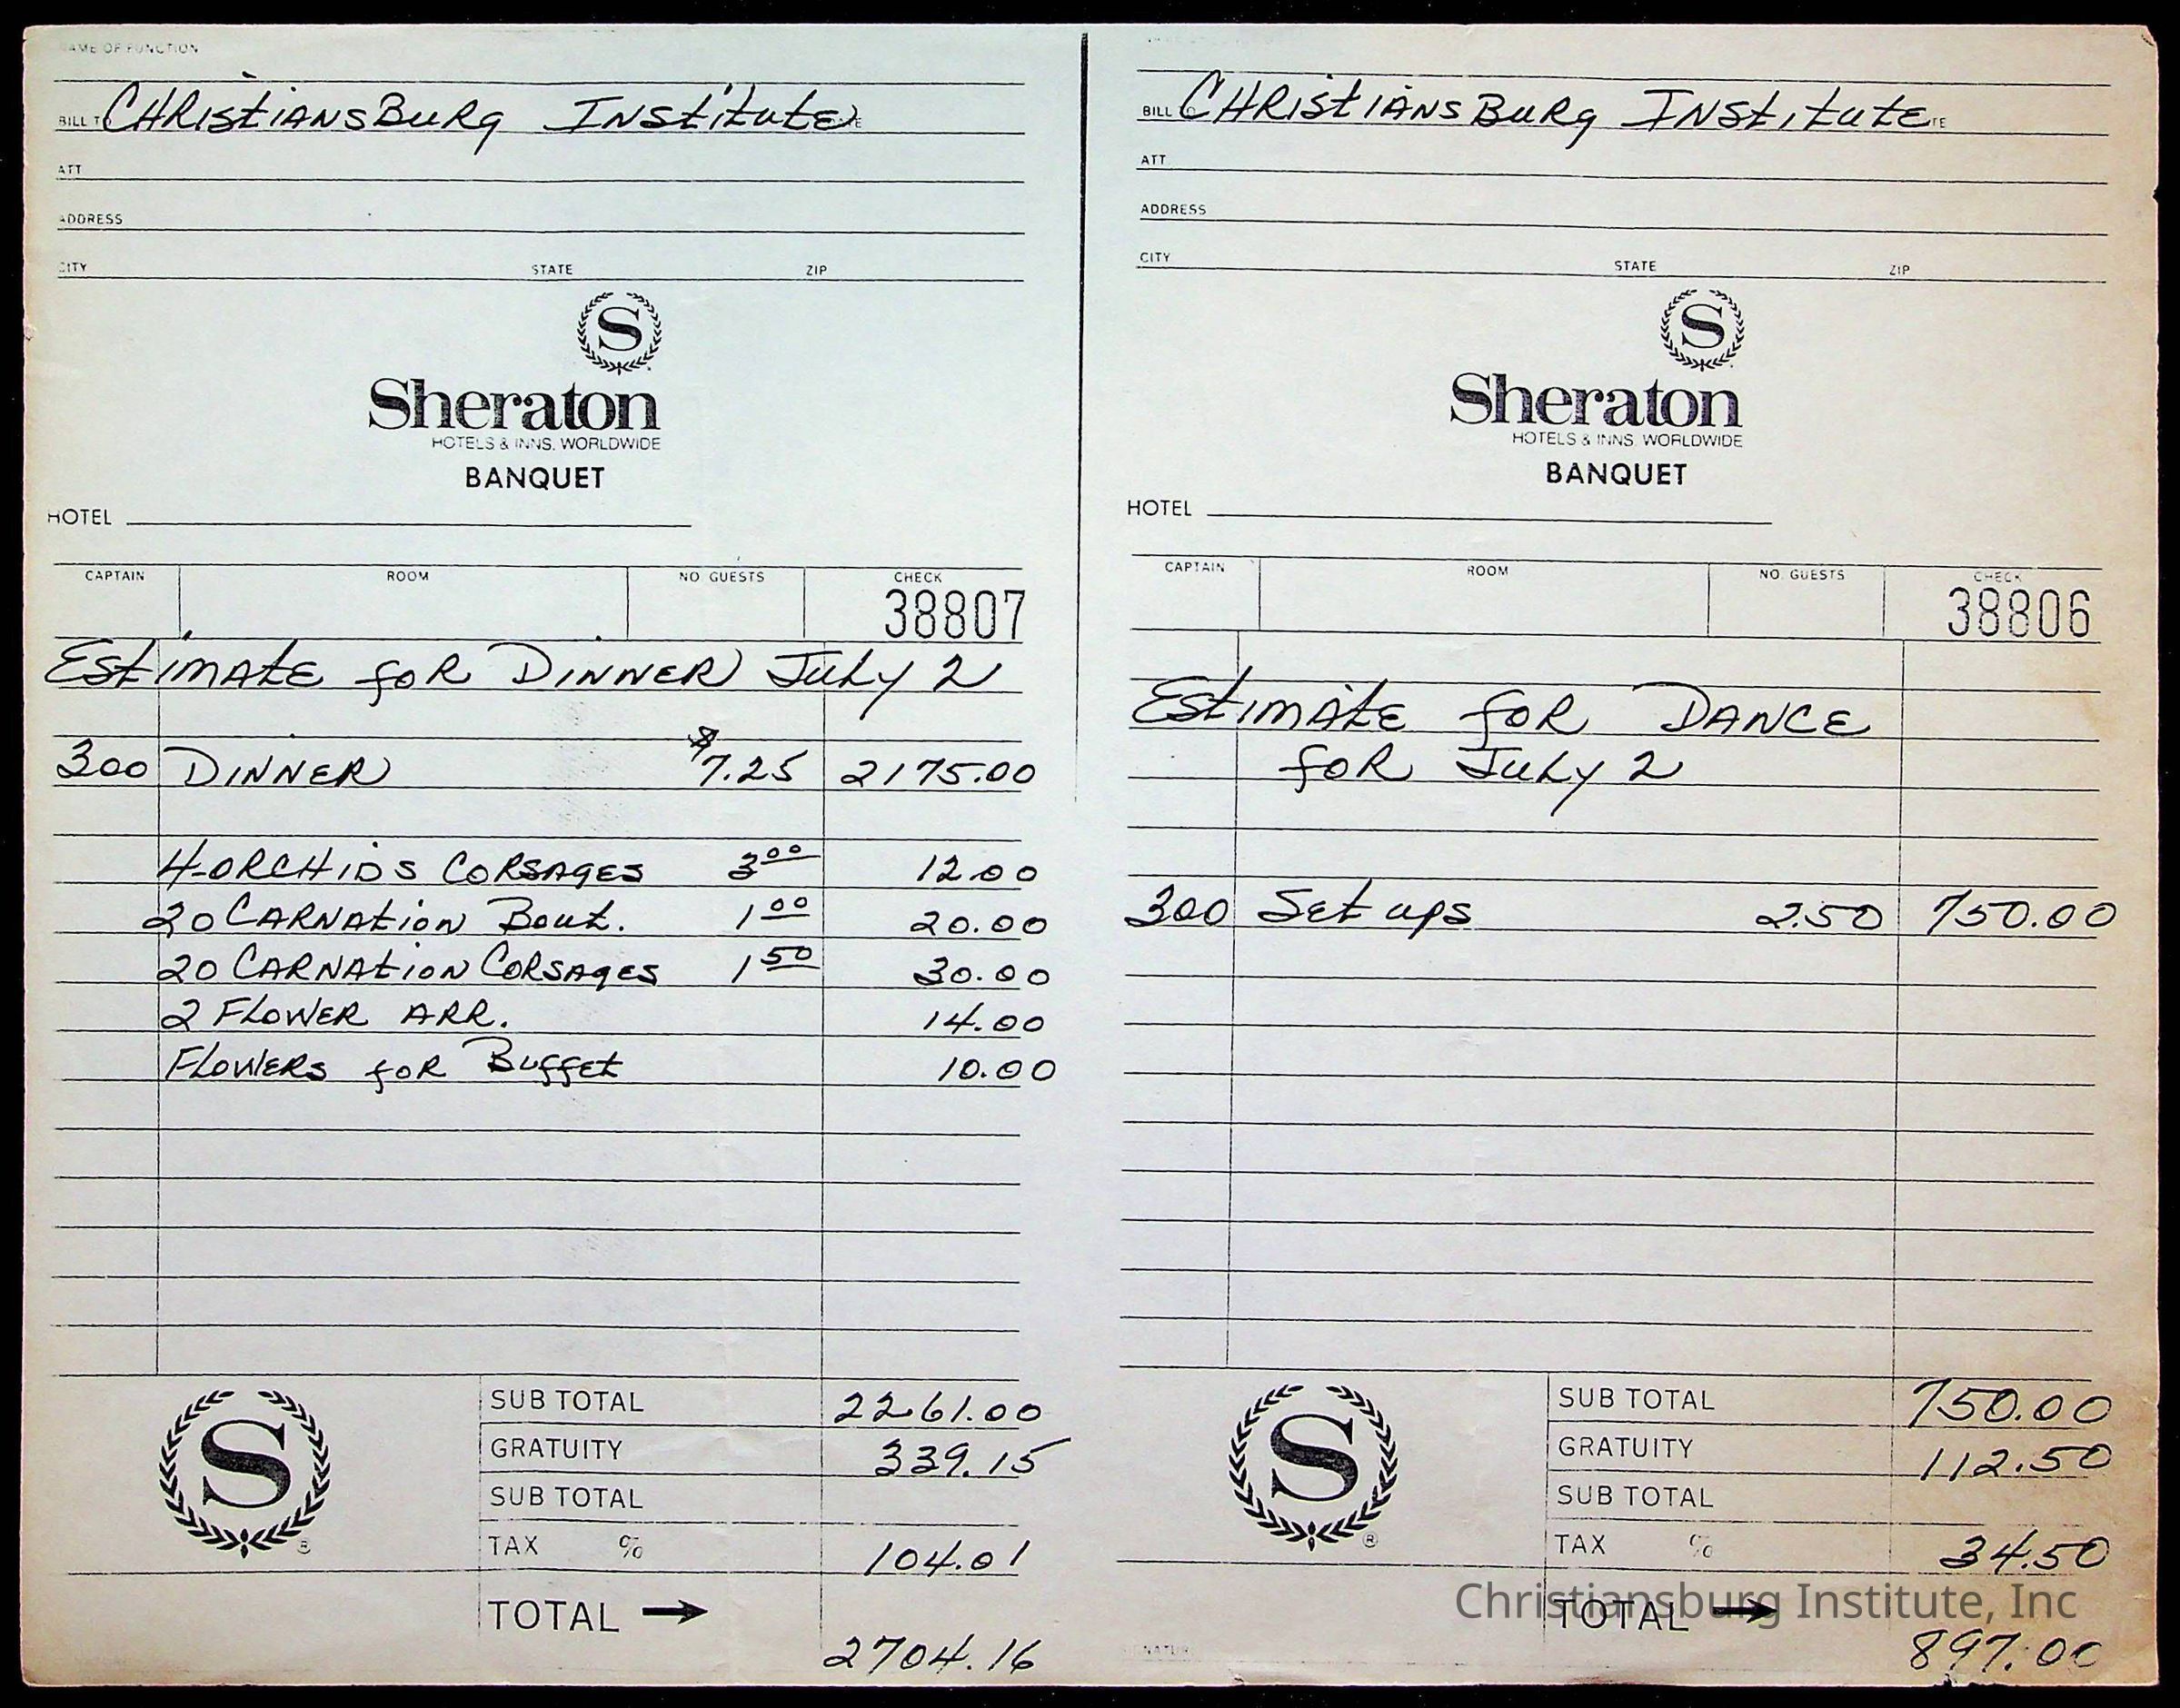 NAME OF FUNCTION
BILL TO CHRistiANsBuRg INstitutE
ATT
ADDRESS
CITY STATE ZIP
S
Sheraton
HOTELS & INNS. WORLDWIDE
BANQUET
HOTEL
CAPTAIN ROOM NO GUESTS CHECK
38807
EstimAtE foR DINNER July 2
300 DINNER $7.25 2175.00
4-ORCHIDS CORSAGES 3.00 12.00
20 CARNAtion Bout. 1.00 20.00
20 CARNAtion CORSAGES 1.50 30.00
2 FLOWER ARR. 14.00
FLOWERS foR Buffet 10.00
S
SUB TOTAL 2261.00
GRATUITY 339.15
SUB TOTAL
TAX % 104.01
TOTAL → 2704.16
BILL TO CHRistiANsBuRg INstitutE
ATT
ADDRESS
CITY STATE ZIP
S
Sheraton
HOTELS & INNS. WORLDWIDE
BANQUET
HOTEL
CAPTAIN ROOM NO. GUESTS CHECK
38806
EstimAtE foR DANCE
foR July 2
300 Set ups 2.50 750.00
S
SUB TOTAL 750.00
GRATUITY 112.50
SUB TOTAL
TAX % 34.50
Christiansburg Institute, Inc
TOTAL → 897.00